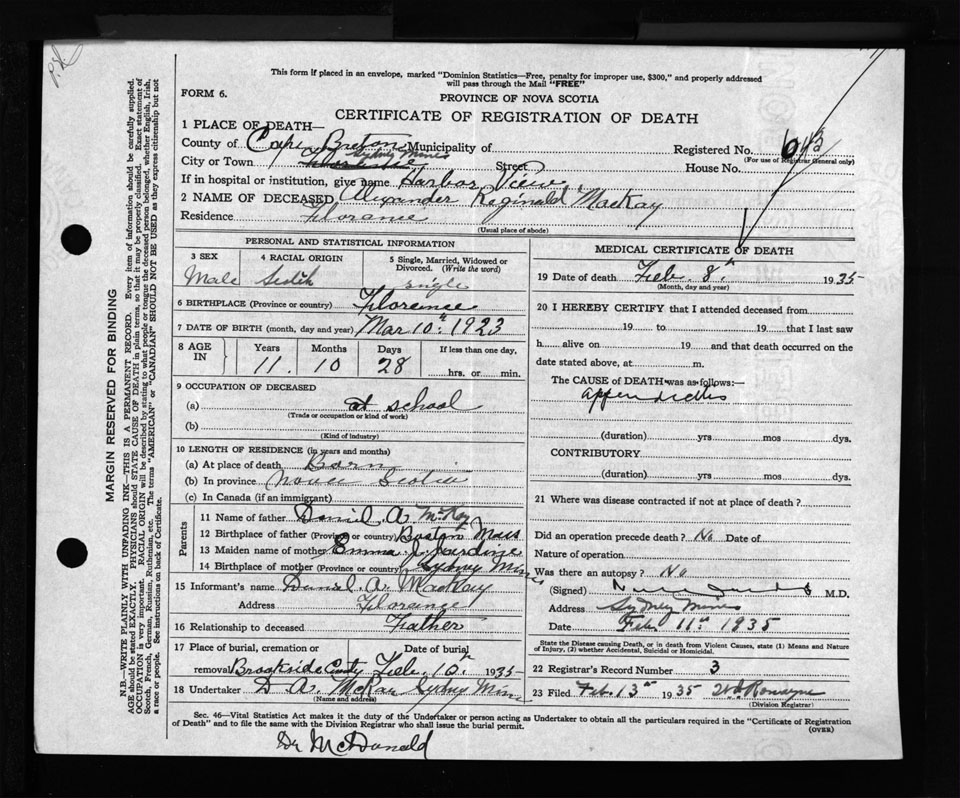 This form if placed in an envelope, marked "Dominion Statistics—Free, penalty for improper use, $300," and properly addressed
will pass through the Mail "FREE"
FORM 6.
PROVINCE OF NOVA SCOTIA
CERTIFICATE OF REGISTRATION OF DEATH
1 PLACE OF DEATH—
County of Cape Breton Municipality of
Registered No.
(For use of Registrar General only)
City or Town Sydney Mines Street
House No.
If in hospital or institution, give name Harbor View
2 NAME OF DECEASED Alexander Reginald MacKay
Residence Florance
(Usual place of abode)
PERSONAL AND STATISTICAL INFORMATION
3 SEX Male
4 RACIAL ORIGIN
5 Single, Married, Widowed or Divorced. (Write the word)
single
6 BIRTHPLACE (Province or country) Florence
7 DATE OF BIRTH (month, day and year) Mar 10th 1923
8 AGE IN Years 11 Months 10 Days 28 If less than one day, hrs. or min.
9 OCCUPATION OF DECEASED
(a) at school
(Trade or occupation or kind of work)
(b)
(Kind of industry)
10 LENGTH OF RESIDENCE (in years and months)
(a) At place of death Born
(b) In province Nova Scotia
(c) In Canada (if an immigrant)
Parents
11 Name of father Daniel A McKay
12 Birthplace of father (Province or country) Boston Mass
13 Maiden name of mother Emma J. Jardine
14 Birthplace of mother (Province or country) Sydny Mines
15 Informant's name Daniel. A. MacKay
Address Florence
16 Relationship to deceased Father
17 Place of burial, cremation or removal Brookside Date of burial Feb. 10th 1935
18 Undertaker D A. McKay Sydny Mines
(Name and address)
MEDICAL CERTIFICATE OF DEATH
19 Date of death Feb. 8th 1935
(Month, day and year)
20 I HEREBY CERTIFY that I attended deceased from
19 to 19 that I last saw
h alive on 19 and that death occurred on the
date stated above, at m.
The CAUSE OF DEATH was as follows:—
appendicitis
(duration) yrs mos dys.
CONTRIBUTORY
(duration) yrs mos dys.
21 Where was disease contracted if not at place of death?
Did an operation precede death? No Date of
Nature of operation
Was there an autopsy? No
(Signed) M.D.
Address Sydney Mines
Date Feb 11th 1935
State the Disease causing Death, or in death from Violent Causes, state (1) Means and Nature
of Injury, (2) whether Accidental, Suicidal or Homicidal.
22 Registrar's Record Number 3
23 Filed Feb. 13th 1935
(Division Registrar)
Sec. 46—Vital Statistics Act makes it the duty of the Undertaker or person acting as Undertaker to obtain all the particulars required in the "Certificate of Registration
of Death" and to file the same with the Division Registrar who shall issue the burial permit.
(OVER)
Dr McDonald
MARGIN RESERVED FOR BINDING
N.B.—WRITE PLAINLY WITH UNFADING INK—THIS IS A PERMANENT RECORD. Every item of information should be carefully supplied.
AGE should be stated EXACTLY. PHYSICIANS should STATE CAUSE OF DEATH in plain terms, so that it may be properly classified. Exact statement of
OCCUPATION is very important. RACIAL ORIGIN will be described by stating to what people or tongue the deceased person belonged, whether English, Irish,
Scotch, French, German, Russian, Ruthenian, etc. The terms "AMERICAN" or "CANADIAN" SHOULD NOT BE USED as they express citizenship but not
a race or people. See instructions on back of Certificate.